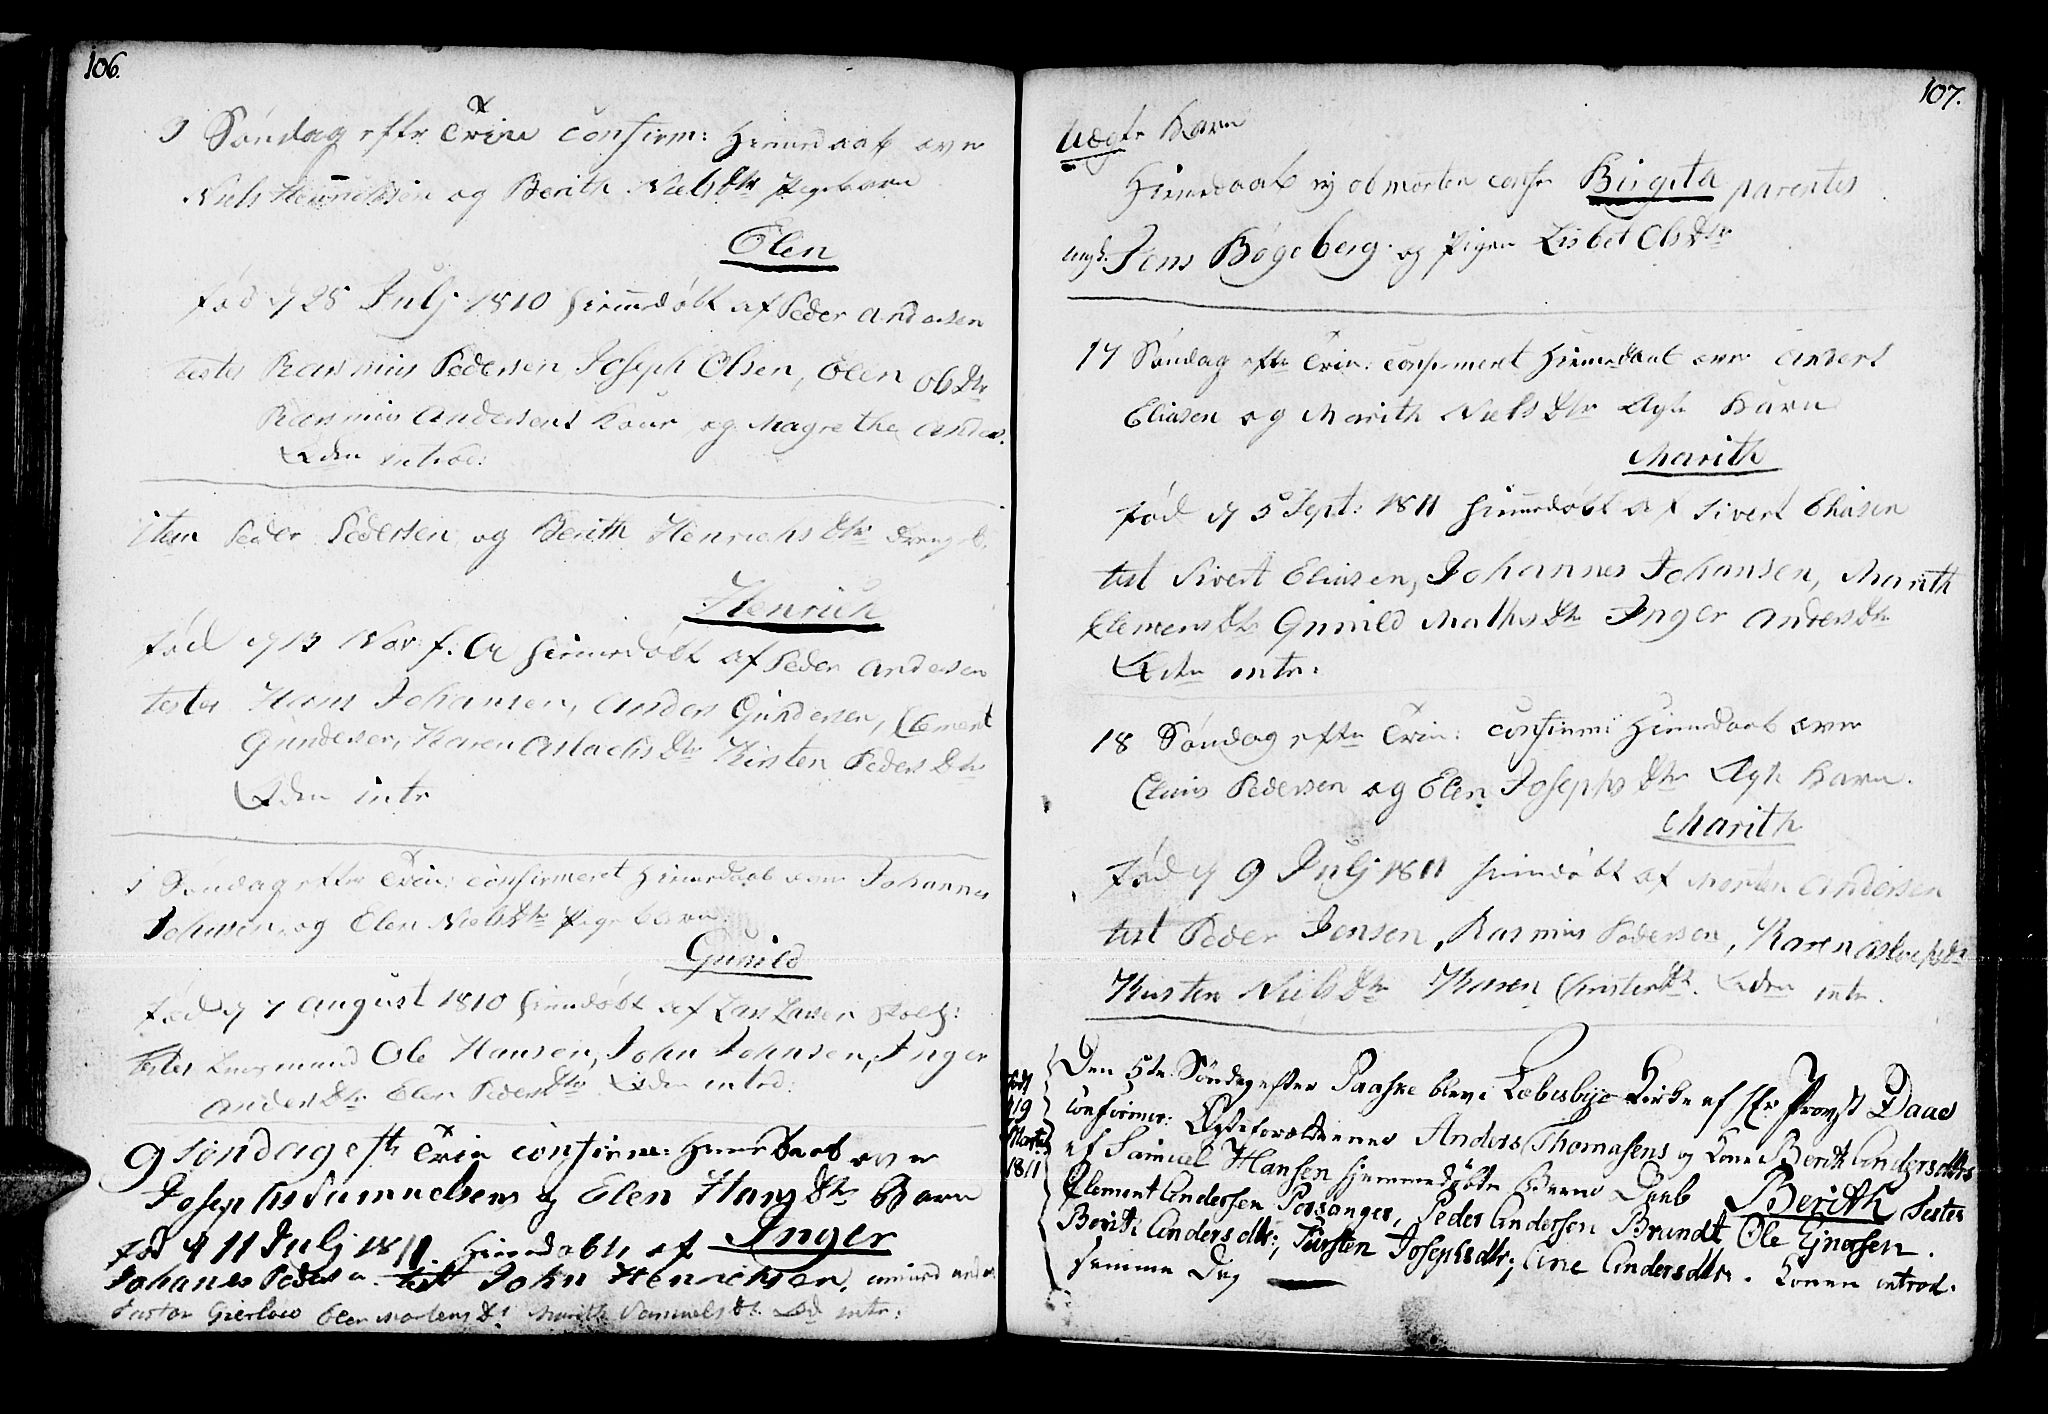 106.
3 Søndag efter Trin confirm: Hiemedaab over
Niels Henrichsen og Berith Nielsdtr Pigebarn
Elen
fød d 28 Julj 1810 hiemedøbt af Peder Andersen
testes Rasmus Pedersen Joseph Olsen, Elen Olsdtr
Rasmus Andersens Kone og Magrethe Anders.
Qden introd:
item Peder Pedersen og Berith Henrichsdtr Drengeb.
Henrich
fød d 13 Nov: f. A hiemedøbt af Peder Andersen
testes Hans Johansen, Anders Gundersen, Clement
Gundersen, Karen Aslachsdtr Kirsten Pedersdtr
Qden intr
5 Søndag efter Trin: confirmeret Hiemedaab over Johannes
Johnsen og Elen Nielsdtr Pigebarn
Gunild
fød d 7 August 1810 hiemdøbt af Lars Larsen
testes Ole Hansen, John Johnsen, Inger
Andersdtr Elen Pedersdtr Qden introd:
9 Søndag eft Trin confirm: Hiemedaab over
Josephs Samuelsens og Elen Hansdtr Barn
fød d 11 Julj 1811. Hiemdøbt af Inger
Johanes Pedersen. test John Henrichsen,
Pastor Gierløw Elen Mortensdt Marith Samuelsdt. Qd intr:
107.
Uægte Barn
Hiemedaab ej ob mortem confir Birgita parentes
ungk. Jens Bøgeberg og Pigen Lisbet Olsdtr
17 Søndag efter Trin: confirmeret Hiemedaab over Anders
Eliasen og Marith Nielsdtr Ægte Barn
Marith
fød d 5 Sept: 1811 hiemedøbt af Sivert Eliasen
test Sivert Eliasen, Johannes Johansen, Marith
Clemensdtr Gunild Mathisdtr Inger Andersdtr
Qden intr:
18 Søndag efter Trin: confirm: Hiemedaab over
Claus Pedersen og Elen Josephsdtr Ægte Barn.
Marith
fød d 9 Julj 1811 hiemdøbt af Morten Andersen
test Peder Jensen, Rasmus Pedersen, Karen
Kirsten Nielsdtr Karen Christerdtr. Qden intr.
Den 5te Søndag efter Paaske blev i Lebesbye Kirke af Hr Provst Daae
confirmer: Ægteforældrenes Anders Thomasens og Kone Berith Andersdtrs
af Samuel Hansen hjemmedøbte Barns Daab Berith Testes
Clement Andersen Porsanger, Peder Andersen Brandt Ole Ejnersen.
Berith Andersdtr, Kirsten Josephsdtr; Ane Andersdtr. Konen introd.
samme Dag
født
d 19
Martii
1811